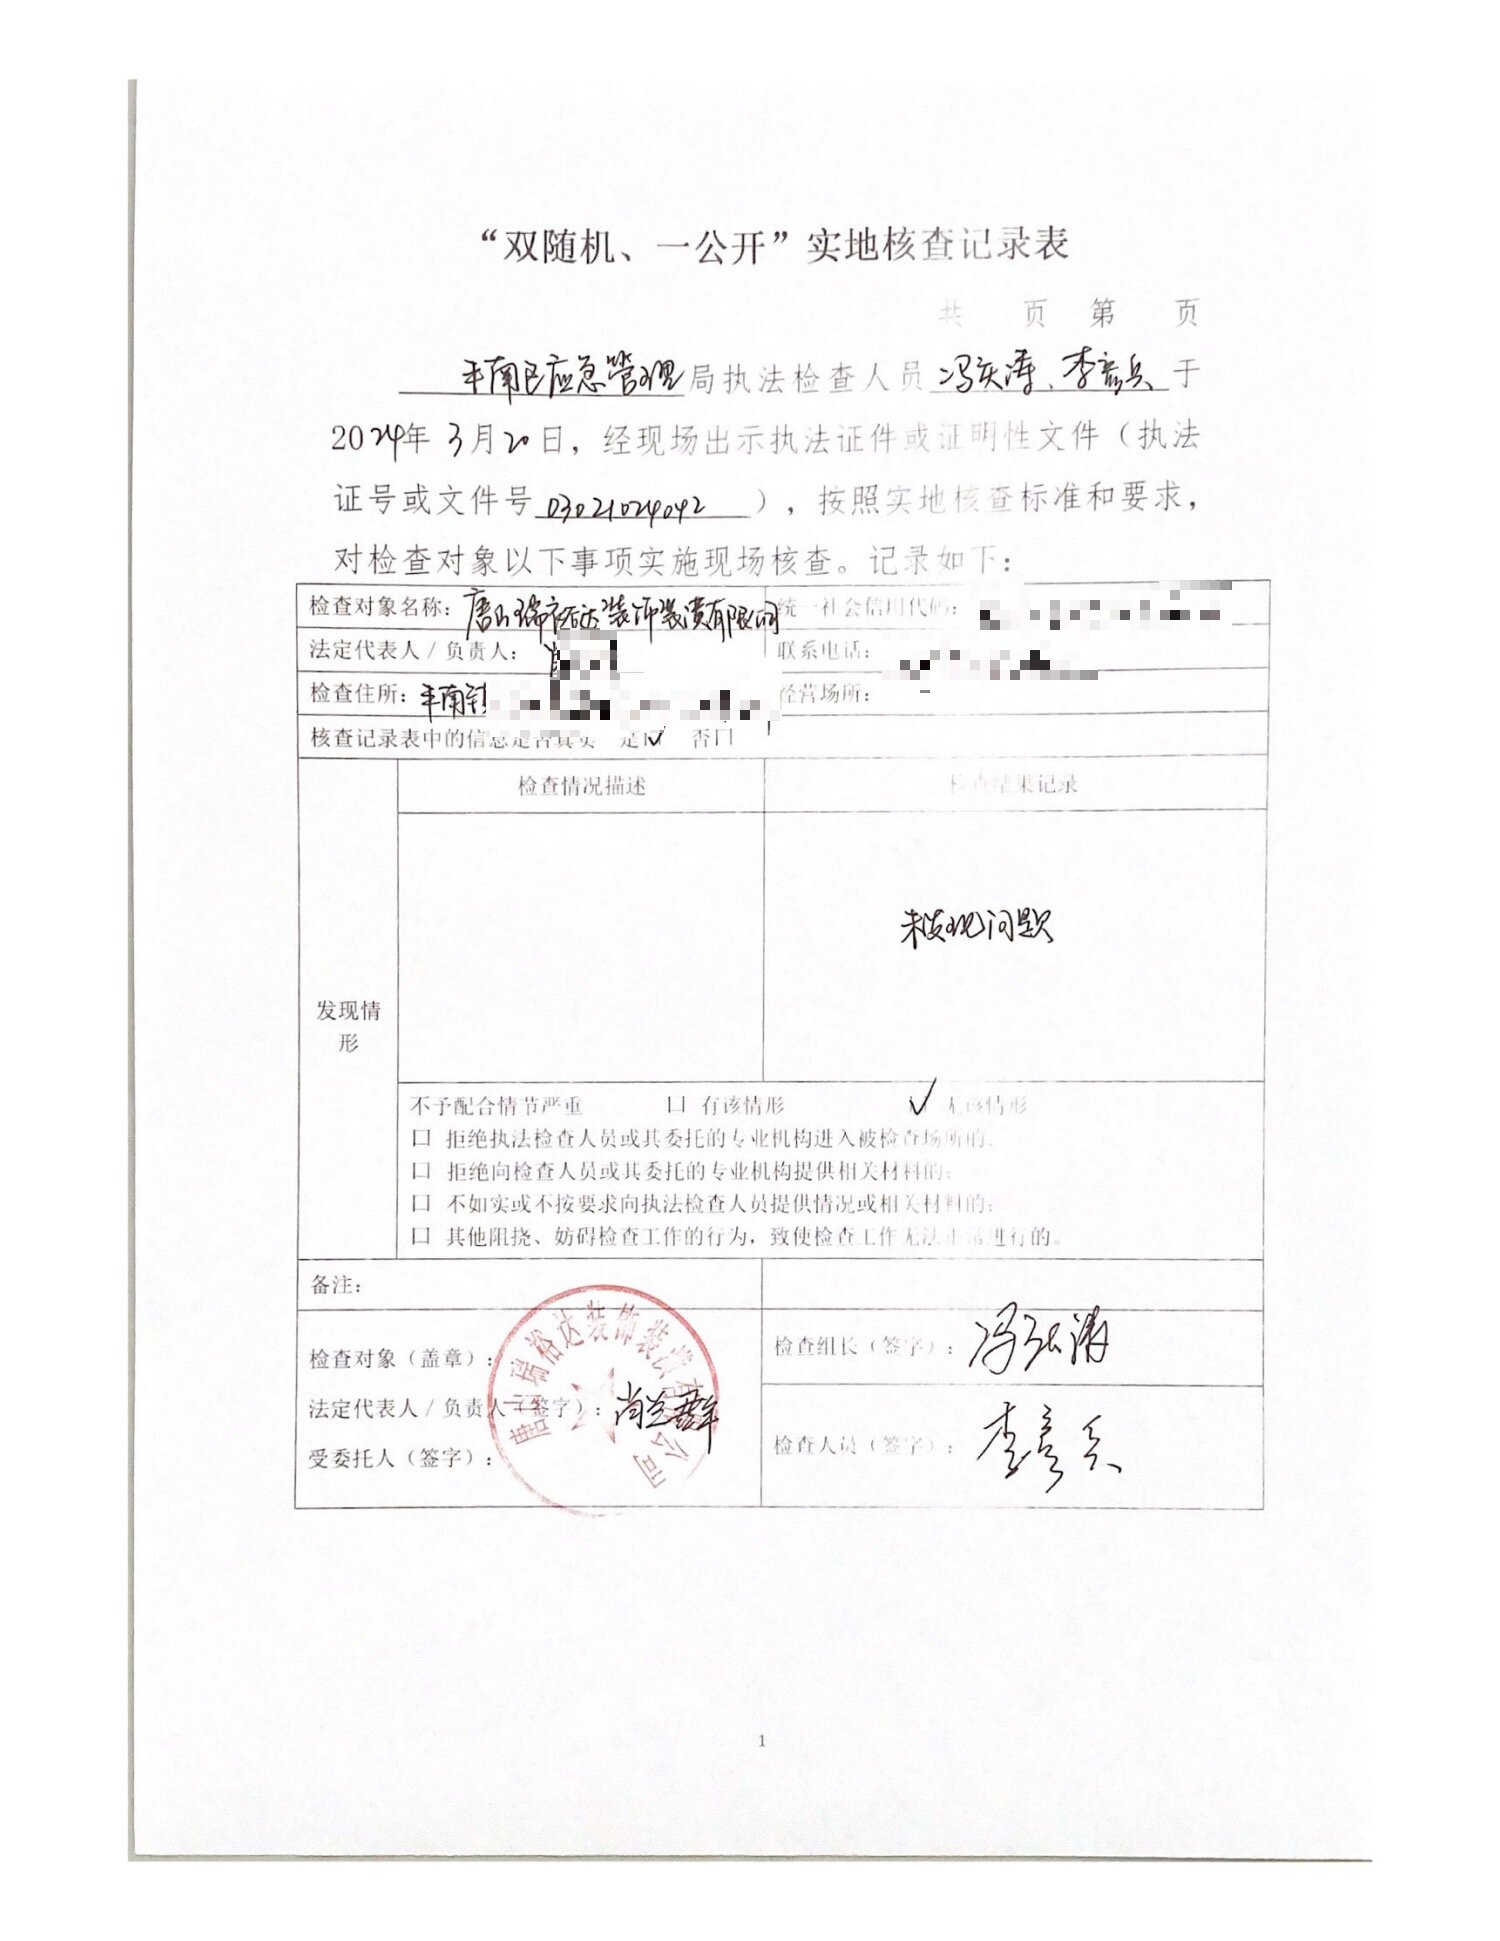 “双随机、一公开”实地核查记录表
共 页 第 页
丰南区应急管理局执法检查人员冯庆涛、李彦兵于
2024年3月20日，经现场出示执法证件或证明性文件（执法
证号或文件号03021024042），按照实地核查标准和要求，
对检查对象以下事项实施现场核查。记录如下：
检查对象名称：唐山瑞裕达装饰装潢有限公司 统一社会信用代码：
法定代表人/负责人： 联系电话：
检查住所：丰南镇 经营场所：
核查记录表中的信息是否真实 是☑ 否口
检查情况描述 检查结果记录
未发现问题
发现情
形
不予配合情节严重 口 有该情形 ✓ 无该情形
口 拒绝执法检查人员或其委托的专业机构进入被检查场所的；
口 拒绝向检查人员或其委托的专业机构提供相关材料的；
口 不如实或不按要求向执法检查人员提供情况或相关材料的；
口 其他阻挠、妨碍检查工作的行为，致使检查工作无法正常进行的。
备注：
检查对象（盖章）： 检查组长（签字）：
唐山瑞裕达装饰装潢有限公司
法定代表人/负责人（签字）：
受委托人（签字）： 检查人员（签字）：李彦兵
1